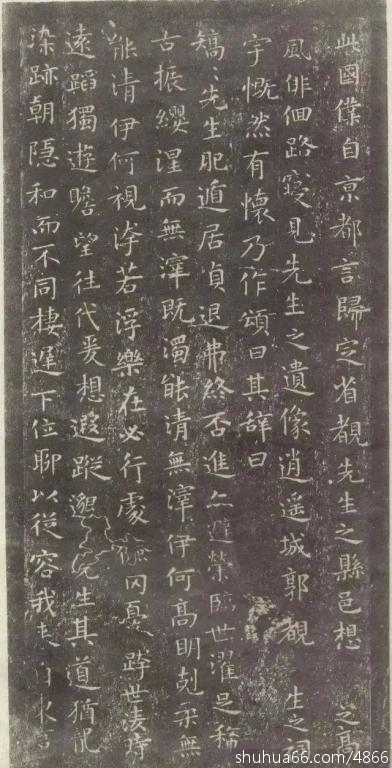 此國僕自京都言歸定省覩先生之縣邑想之高
風俳佪路寢見先生之遺像逍遥城郭覩生之祠
宇慨然有懷乃作頌曰其辭曰
矯〻先生肥遁居貞退弗終否進亦避榮臨世濯足稀
古振纓涅而無滓既濁能清無滓伊何高明剋柔無
能清伊何視洿若浮樂在必行處儉罔憂跨世凌時
遠蹈獨遊瞻望往代爰想遐蹤邈先生其道猶龍
染跡朝隱和而不同棲遲下位聊以從容我來自東言
shuhua66.com/4866